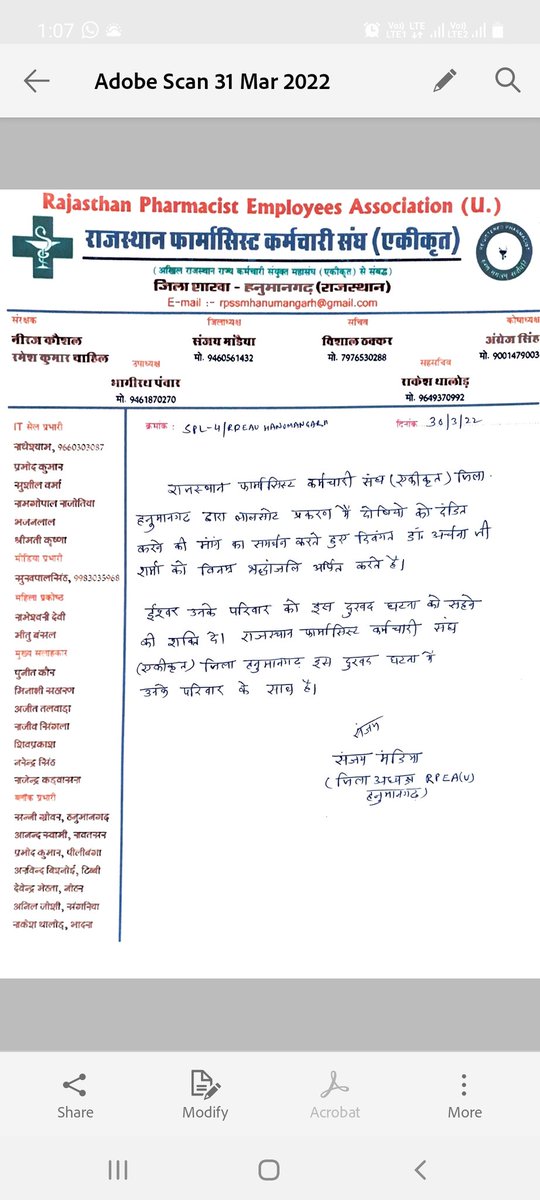 1:07
Vo)) LTE LTE1
Vo)) LTE2
Adobe Scan 31 Mar 2022
Rajasthan Pharmacist Employees Association (U.)
राजस्थान फार्मासिस्ट कर्मचारी संघ (एकीकृत)
(अखिल राजस्थान राज्य कर्मचारी संयुक्त महासंघ (एकीकृत) से संबद्ध)
जिला शाखा - हनुमानगढ़ (राजस्थान)
E-mail :- rpssmhanumangarh@gmail.com
REGISTERED PHARMACIST
संरक्षक
नीरज कौशल
रमेश कुमार चाहिल
जिलाध्यक्ष
संजय मांडैया
मो. 9460561432
सचिव
विशाल ठक्कर
मो. 7976530288
कोषाध्यक्ष
अंग्रेज सिंह
मो. 9001479003
उपाध्यक्ष
भागीरथ पंवार
मो. 9461870270
सहसचिव
राकेश धालोड़
मो. 9649370992
क्रमांक : SPL-4/RPEAU HANUMANGARH
दिनांक 30/3/22
IT सेल प्रभारी
राधेश्याम, 9660303087
प्रमोद कुमार
सुशील वर्मा
रामगोपाल राजोतिया
भजनलाल
श्रीमती कृष्णा
मीडिया प्रभारी
सुखपालसिंह, 9983035968
महिला प्रकोष्ठ
रामेश्वरी देवी
मीतु बंसल
मुख्य सलाहकार
पुनीत कौर
मिनाक्षी सहारण
अजीत तलवाड़ा
राजीव सिंगला
शिवप्रकाश
नरेन्द्र सिंह
राजेन्द्र कड़वासरा
ब्लॉक प्रभारी
सन्नी ग्रोवर, हनुमानगढ़
आनन्द स्वामी, रावतसर
प्रमोद कुमार, पीलीबंगा
अरविन्द बिश्नोई, टिब्बी
देवेन्द्र मेहता, नोहर
अनिल जोशी, संगरिया
राकेश धालोड़, भादरा
राजस्थान फार्मासिस्ट कर्मचारी संघ (एकीकृत) जिला
हनुमानगढ द्वारा लालसोट प्रकरण में दोषियो को दंडित
करने की मांग का समर्थन करते हुए दिवंगत डॉ. अर्चना जी
शर्मा को विनम्र श्रद्धांजलि अर्पित करते है।
ईश्वर उनके परिवार को इस दुखद घटना को सहने
की शक्ति दे। राजस्थान फार्मासिस्ट कर्मचारी संघ
(एकीकृत) जिला हनुमानगढ इस दुखद घटना में
उनके परिवार के साथ है।
संजय
संजय मंडिया
(जिला अध्यक्ष RPEA(U)
हनुमानगढ)
Share
Modify
Acrobat
More